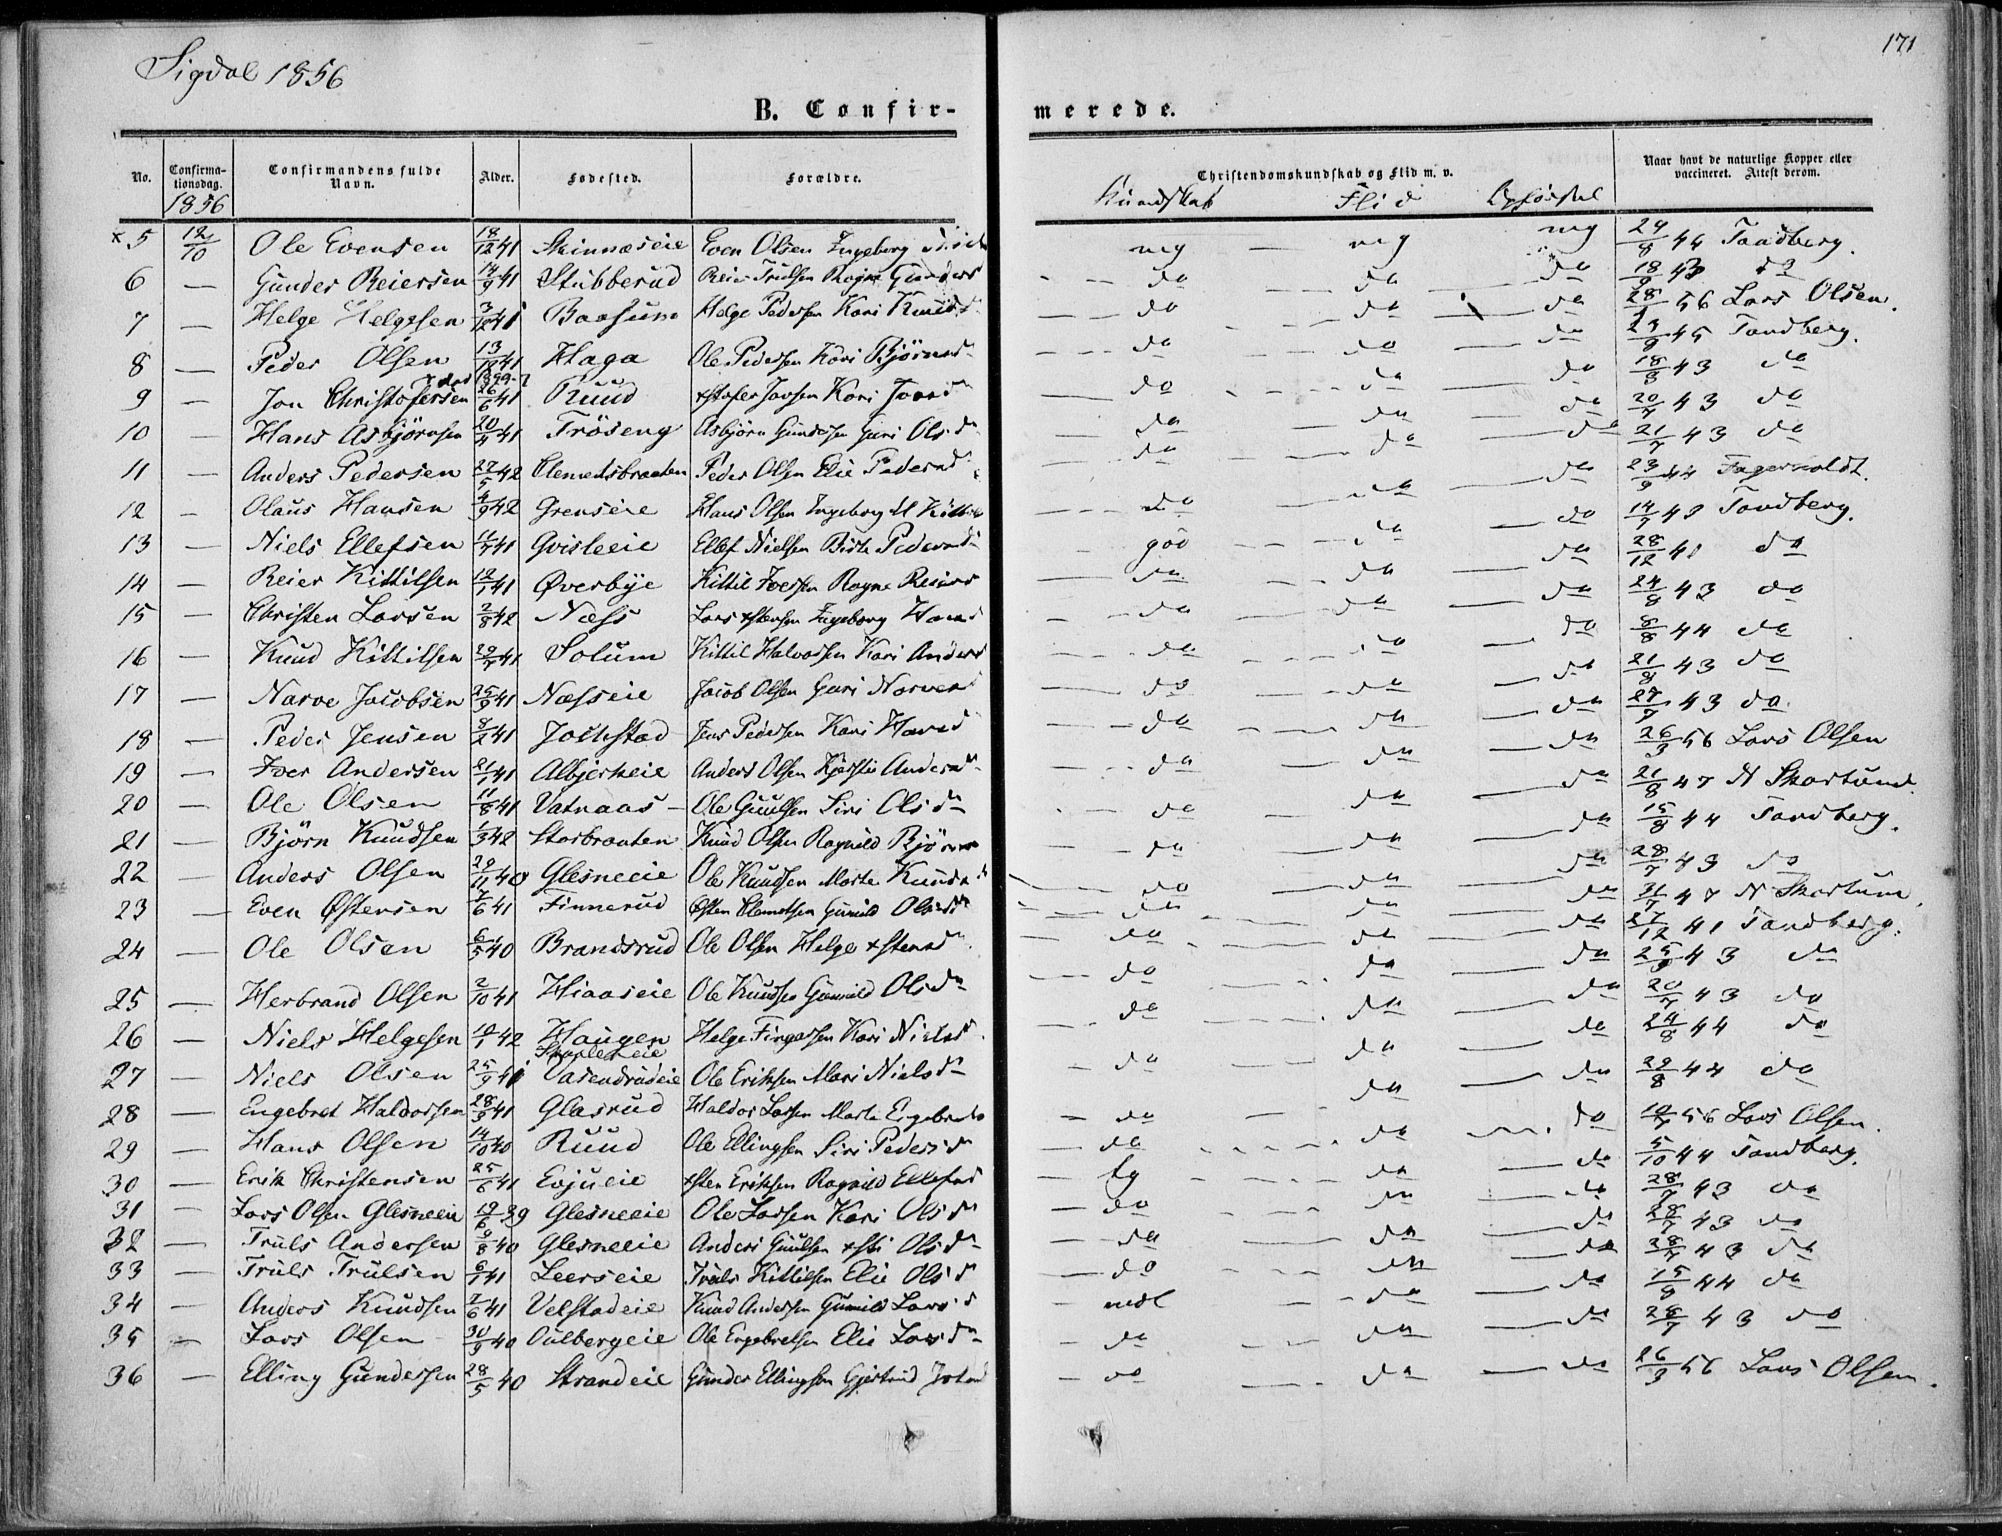 171
Sigdal 1856
B. Confir-
merede.
No. Confirma-tionsdag. Confirmandens fulde Navn. Alder. Fødested. Forældre. Christendomskundskab og Flid m. v. Naar havt de naturlige Kopper eller vaccineret. Attest derom.
1856 Kundskab Flid Opførsel
x 5 12/10 Ole Evensen 18/12 41 Skinnæseie Even Olsen Ingeborg mg — mg mg 24/8 44 Tandberg.
6 — Gunder Reiersen 14/9 41 Stubberud Reier Trulsen Ragne Gunders do do do 18/9 43 do
7 — Helge Helgesen 3/12 41 Baasum Helge Pedersen Kari Knuds do do do 28/ 56 Lars Olsen.
8 — Peder Olsen 13/12 41 Haga Ole Pedersen Kari Bjørnsd do do do 23/8 45 Tandberg.
9 — Jon Christofersen 26/6 41 Ruud xstofer Jonsen Kari do do do 18/8 43 do
10 — Hans Asbjørnsen 20/ 41 Trøseng Asbjørn Gundersen Guri Olsdr do do do 20/7 43 do
11 — Anders Pedersen 27/5 42 Clemetsbraaten Peder Olsen Elie Pedersd do do do 21/7 43 do
12 — Olaus Hansen 4/9 42 Grenseie Hans Olsen Ingeborg M do do do 23/9 44 Fagerholdt.
13 — Niels Ellefsen 11/7 41 Gvisleeie Ellef Nielsen Birte Pedersd god do do 14/7 43 Tandberg.
14 — Reier Kittilsen 12/1 41 Øverbye Kittil Iversen Ragne Reiers do do do 28/12 41 do
15 — Christen Larsen 2/8 42 Næss Lars xstensen Ingeborg do do do 24/8 43 do
16 — Knud Kittilsen 29/ 41 Solum Kittil Halvorsen Kari Anders do do do 8/8 44 do
17 — Narve Jacobsen 25/9 41 Næsseie Jacob Olsen Guri Narvesd do do do 21/8 43 do
18 — Peder Jensen 8/2 41 Jens Pedersen Kari do do do 27/7 43 do
19 — Iver Andersen 21/1 41 Albjerkeie Anders Olsen Kjersti Andersd do do do 26/3 56 Lars Olsen
20 — Ole Olsen 11/8 41 Vatnaas — Ole Guulsen Siri Olsdr do do do 21/8 47 N Skartund.
21 — Bjørn Knudsen 1/3 42 Storbraaten Knud Olsen Ragnild Bjørns do do do 15/8 44 Tandberg.
22 — Anders Olsen 29/11 40 Glesneeie Ole Knudsen Marte Knudsd do do do 28/7 43 do
23 — Even Østensen 5/6 41 Finnerud Østen Clemetsen Gunild Olsdr do do do 31/7 47 N Skartum.
24 — Ole Olsen 6/5 40 Brandsrud Ole Olsen Helge xstensd do do do 27/12 41 Tandberg.
25 — Herbrand Olsen 2/10 41 Hiaaseie Ole Knudsen Gunild Olsdr do do do 25/9 43 do
26 — Niels Helgesen 10/1 42 Haugen Helge Fingarsen Kari Nielsd do do do 20/7 43 do
24/8 44 do
27 — Niels Olsen 25/9 41 Vadendrudeie Ole Eriksen Mari Nielsdr do do do 29/8 44 do
28 — Engebret Haldorsen 28/3 41 Glasrud Haldor Larsen Marte Engebrets do do do 56 Lars Olsen.
29 — Hans Olsen 14/10 40 Ruud Ole Ellingsen Siri Pedersd do do do 5/10 44 Tandberg.
30 — Erik Christensen 25/6 41 Evjueie xsten Eriksen Ragnild Ellefsd tg do do 28/7 43 do
31 — Lars Olsen Glesneeie 19/6 39 Glesneeie Ole Larsen Kari Olsdr do do do 28/7 43 do
32 — Truls Andersen 9/8 40 Glesneeie Anders Guulsen xsti Olsdr do do do 28/7 43 do
33 — Truls Trulsen 6/1 41 Leerseie Truls Kittilsen Elie Olsd do do do 15/8 44 do
34 — Anders Knudsen 7/6 41 Velstadeie Knud Andersen Gunild Larsd mdl do do 28/7 43 do
35 — Lars Olsen 30/9 40 Oulbergeie Ole Engebretsen Elie Larsdr do do do
36 — Elling Gundersen 28/5 40 Strandeie Gunder Ellingsen Gjertrud do do do 26/3 56 Lars Olsen.